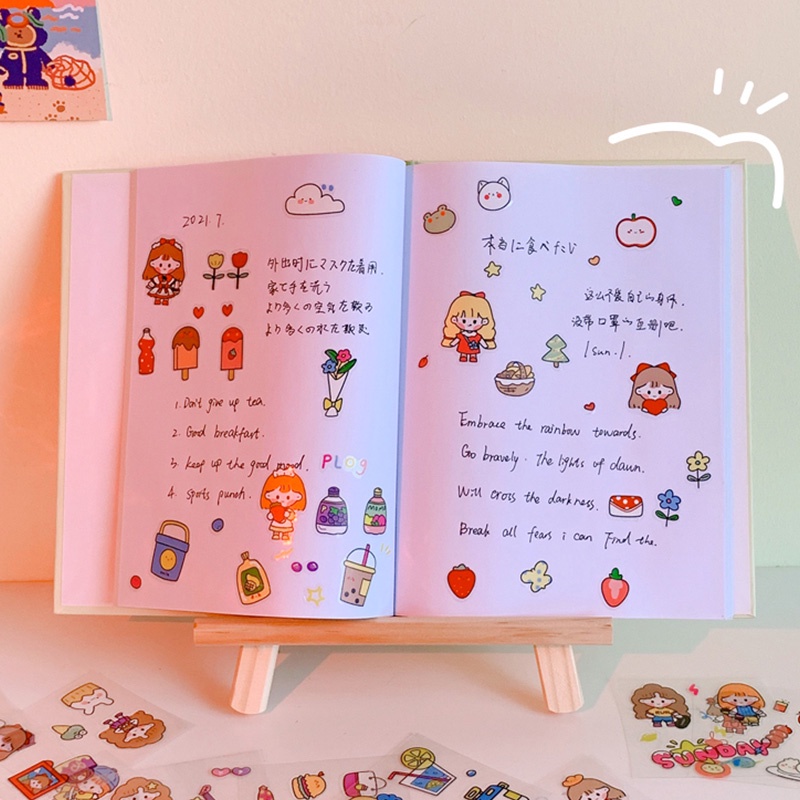 2021.7.
外出时にマスクを着用.
家て手を洗う
より多くの空気を飲る
より多くのれた飲む
1. Don't give up tea.
2. Good breakfast.
3. keep up the good mood.
PLog
4. sports punch.
本当に食べたい
这么不爱自己的身体.
没带口罩的互删吧.
/ sun. /.
Embrace the rainbow towards.
Go bravely. The lights of dawn.
Will cross the darkness.
Break all fears i can Find the.
SUNDAY